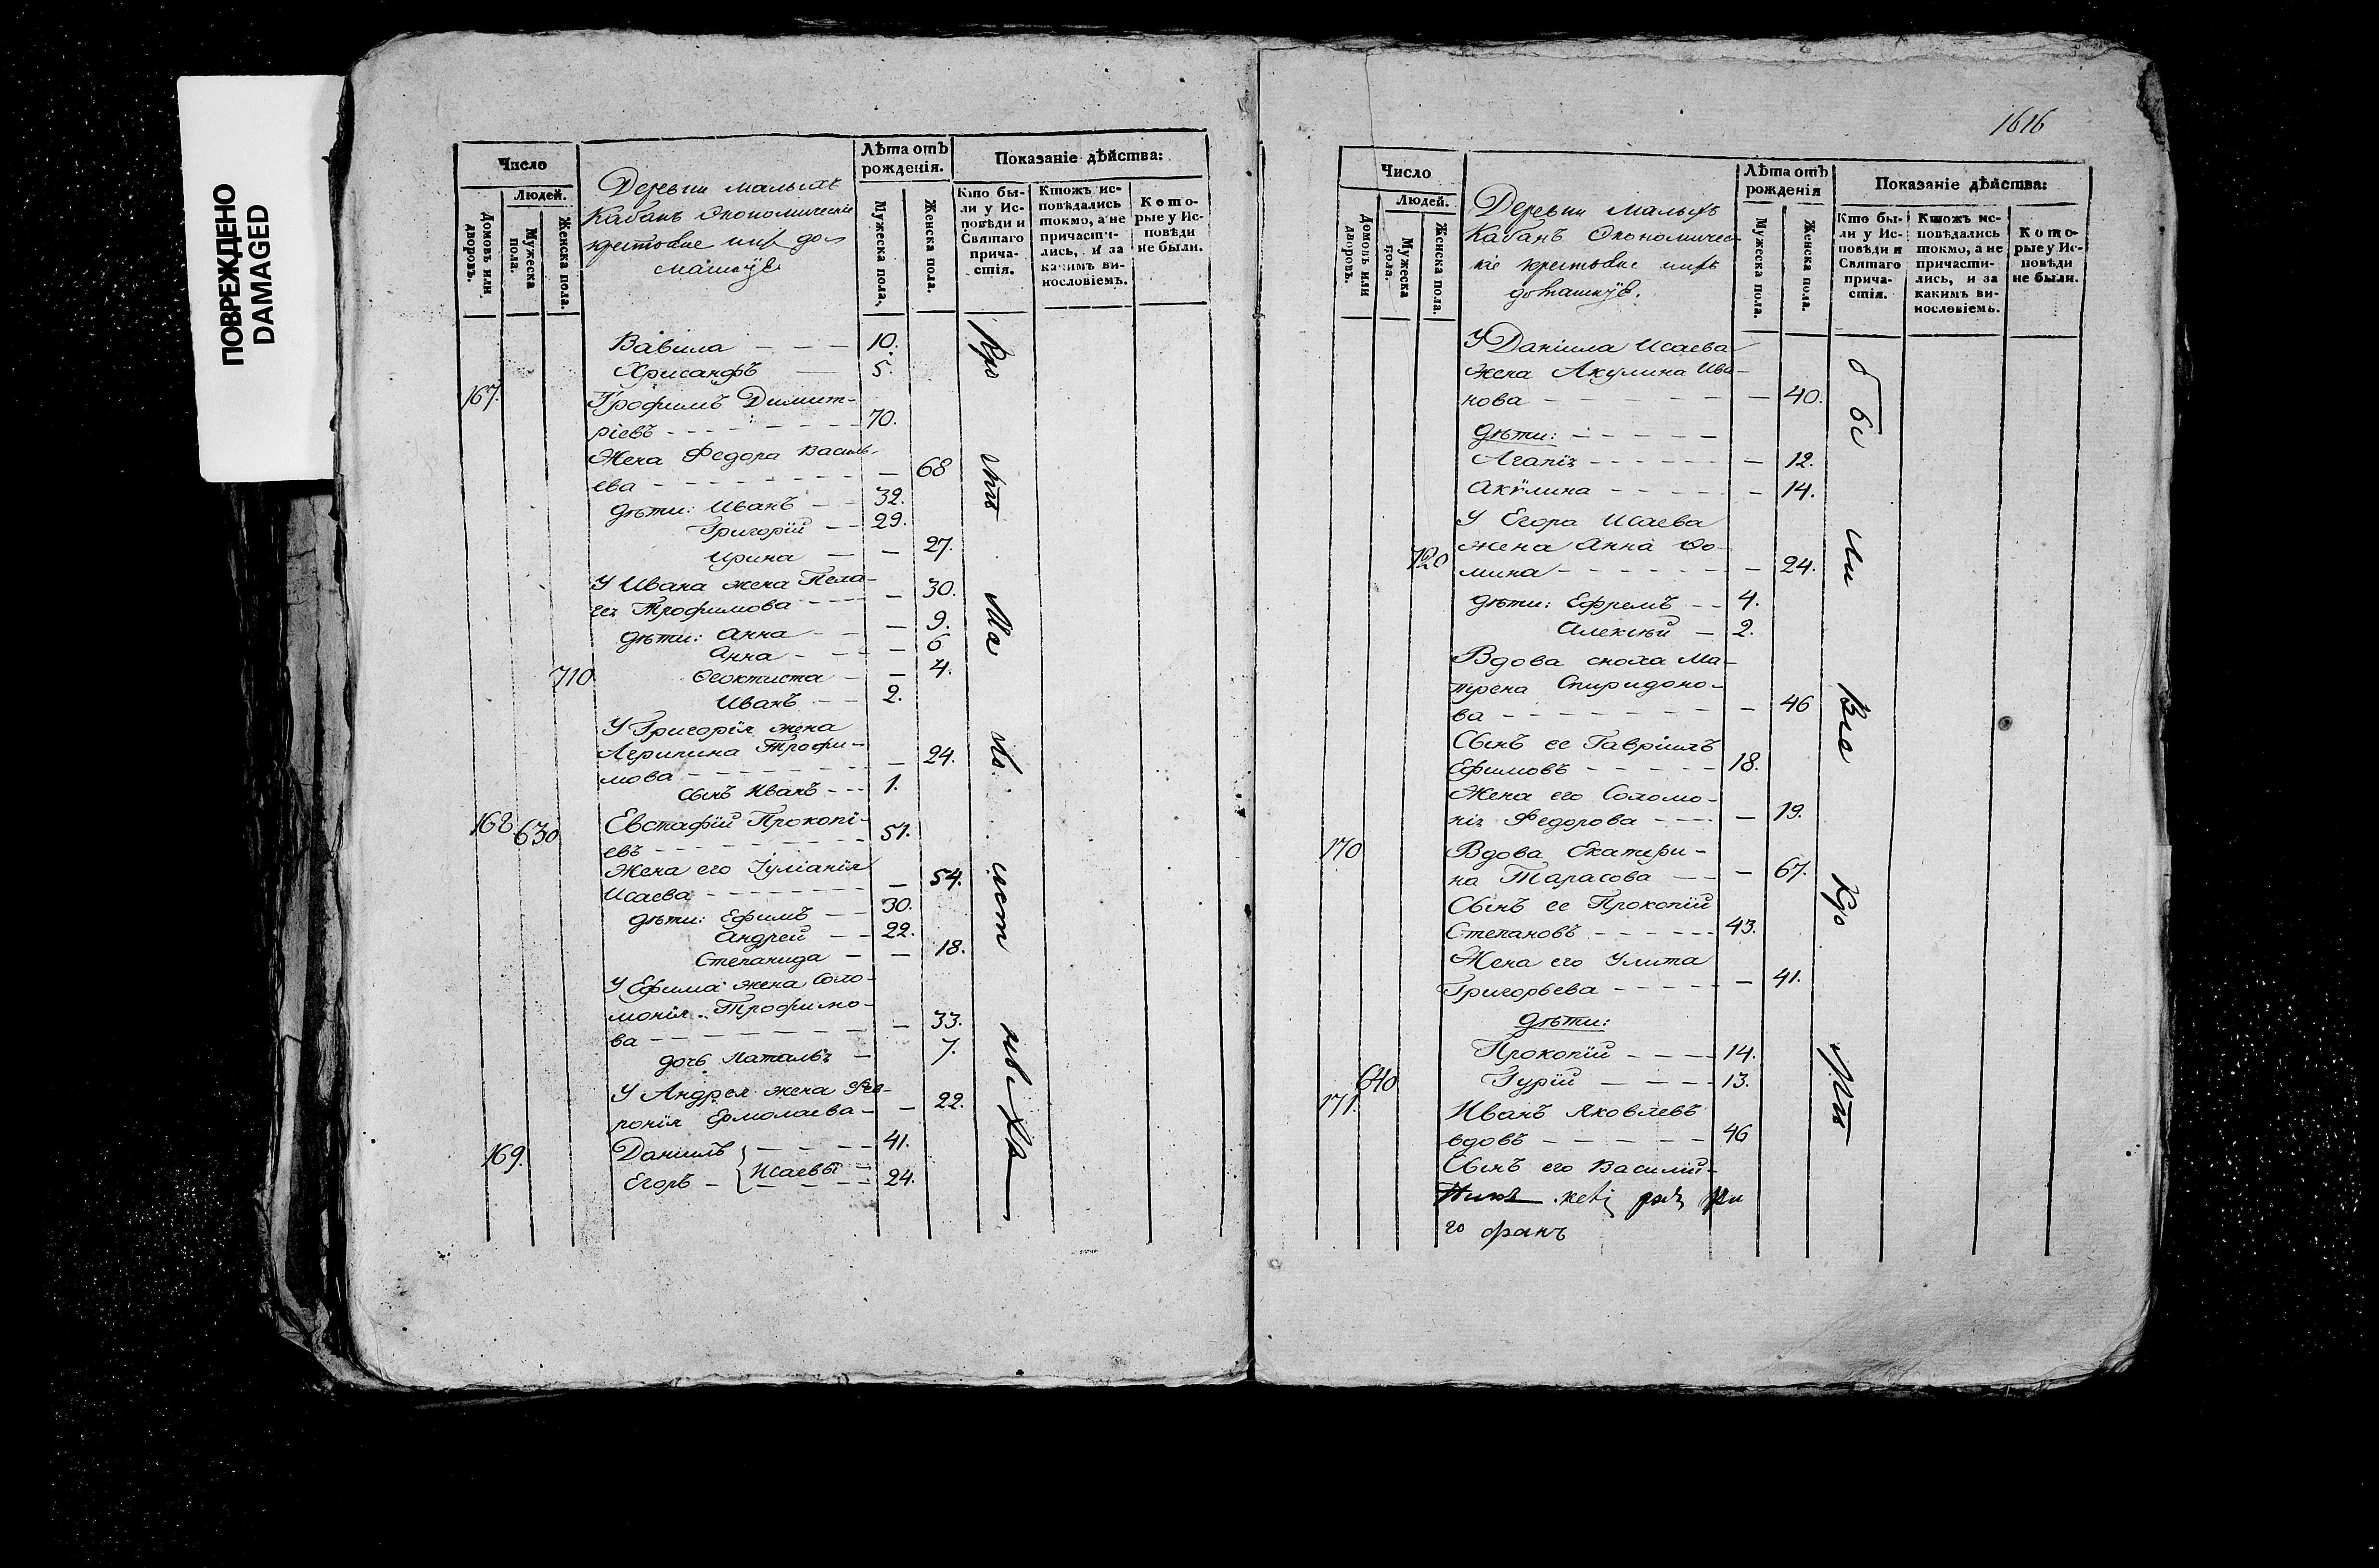 ПОВРЕЖДЕНО
DAMAGED
Число
Людей.
Домовъ или дворовъ.
Мужеска пола.
Женска пола.
Деревни малыхъ
Кабанъ Экономические
крестьяне ихъ до
машнїе
Лѣта отъ
рожденія.
Мужеска пола,
Женска пола.
Показаніе дѣйства:
Кто бы-
ли у Ис-
повѣди и
Святаго
прича-
стія.
Ктожъ ис-
повѣдались
токмо, а не
причасти-
лись, и за
какимъ ви-
нословіемъ.
Кото-
рые у Ис-
повѣди
не были.
Вавила - - - 10.
Хрисанфъ — 5.
167. Трофимъ Димит-
ріевъ - - - - 70.
Жена Федора Василь-
ева - - - - — 68
дѣти: Иванъ - - 32.
Григорій - - 29.
Ирина — — 27.
У Ивана жена Пела-
гея Трофимова - - - — 30.
дѣти: Анна - - — 9.
Анна - - - — 6
710 Феоктиста - — 4.
Иванъ - - 2.
У Григорія жена
Агрипина Трофи-
мова - - - - — 24.
сынъ Иванъ - - - 1.
168 630 Евстафій Прокопі-
евъ - - - - 51.
Жена его Іуліанія
Исаева - - - - — 54.
дѣти: Ефимъ - - 30.
Андрей - - 22.
Степанида - — 18.
У Ефима жена Соло-
монія Трофимо-
ва - - - - — 33.
дочь Наталья - 7.
У Андрея жена Фев-
ронія Ермолаева - — 22.
169. Даніилъ - - - - 41.
Егоръ - { Исаевы - - 24.
1616
Число
Людей.
Домовъ или дворовъ.
Мужеска пола.
Женска пола.
Деревни Малыхъ
Кабанъ Экономичес-
кіе крестьяне ихъ
домашнїе.
Лѣта отъ
рожденія
Мужеска пола.
Женска пола.
Показаніе дѣйства:
Кто бы-
ли у Ис-
повѣди и
Святаго
прича-
стія.
Ктожъ ис-
повѣдались
токмо, а не
причасти-
лись, и за
какимъ ви-
нословіемъ.
Кото-
рые у Ис-
повѣди
не были.
У Даніила Исаева
жена Акулина Ива-
нова - - - - — 40.
дѣти: - - - - -
Агапія - - - - - — 12.
Акилина - - - - - 14.
У Егора Исаева
жена Анна Фо-
720 мина - - - - - — 24.
дѣти: Ефремъ - - 4.
Алексѣй - 2.
Вдова сноха Ма-
трена Спиридоно-
ва - - - - - — 46
Сынъ ее Гавріилъ
Ефимовъ - - - - - 18.
Жена его Соломо-
нія Федорова - - - — 19.
170 Вдова Екатери-
на Тарасова - - — 67.
Сынъ ее Прокопій
Степановъ - - - - - 43.
Жена его Улита
Григорьева - - - - - — 41.
дѣти:
Прокопій - - - - 14.
640 Гурій - - - - 13.
171. Иванъ Яковлевъ
вдовъ - - - - - 46
Сынъ его Василій -